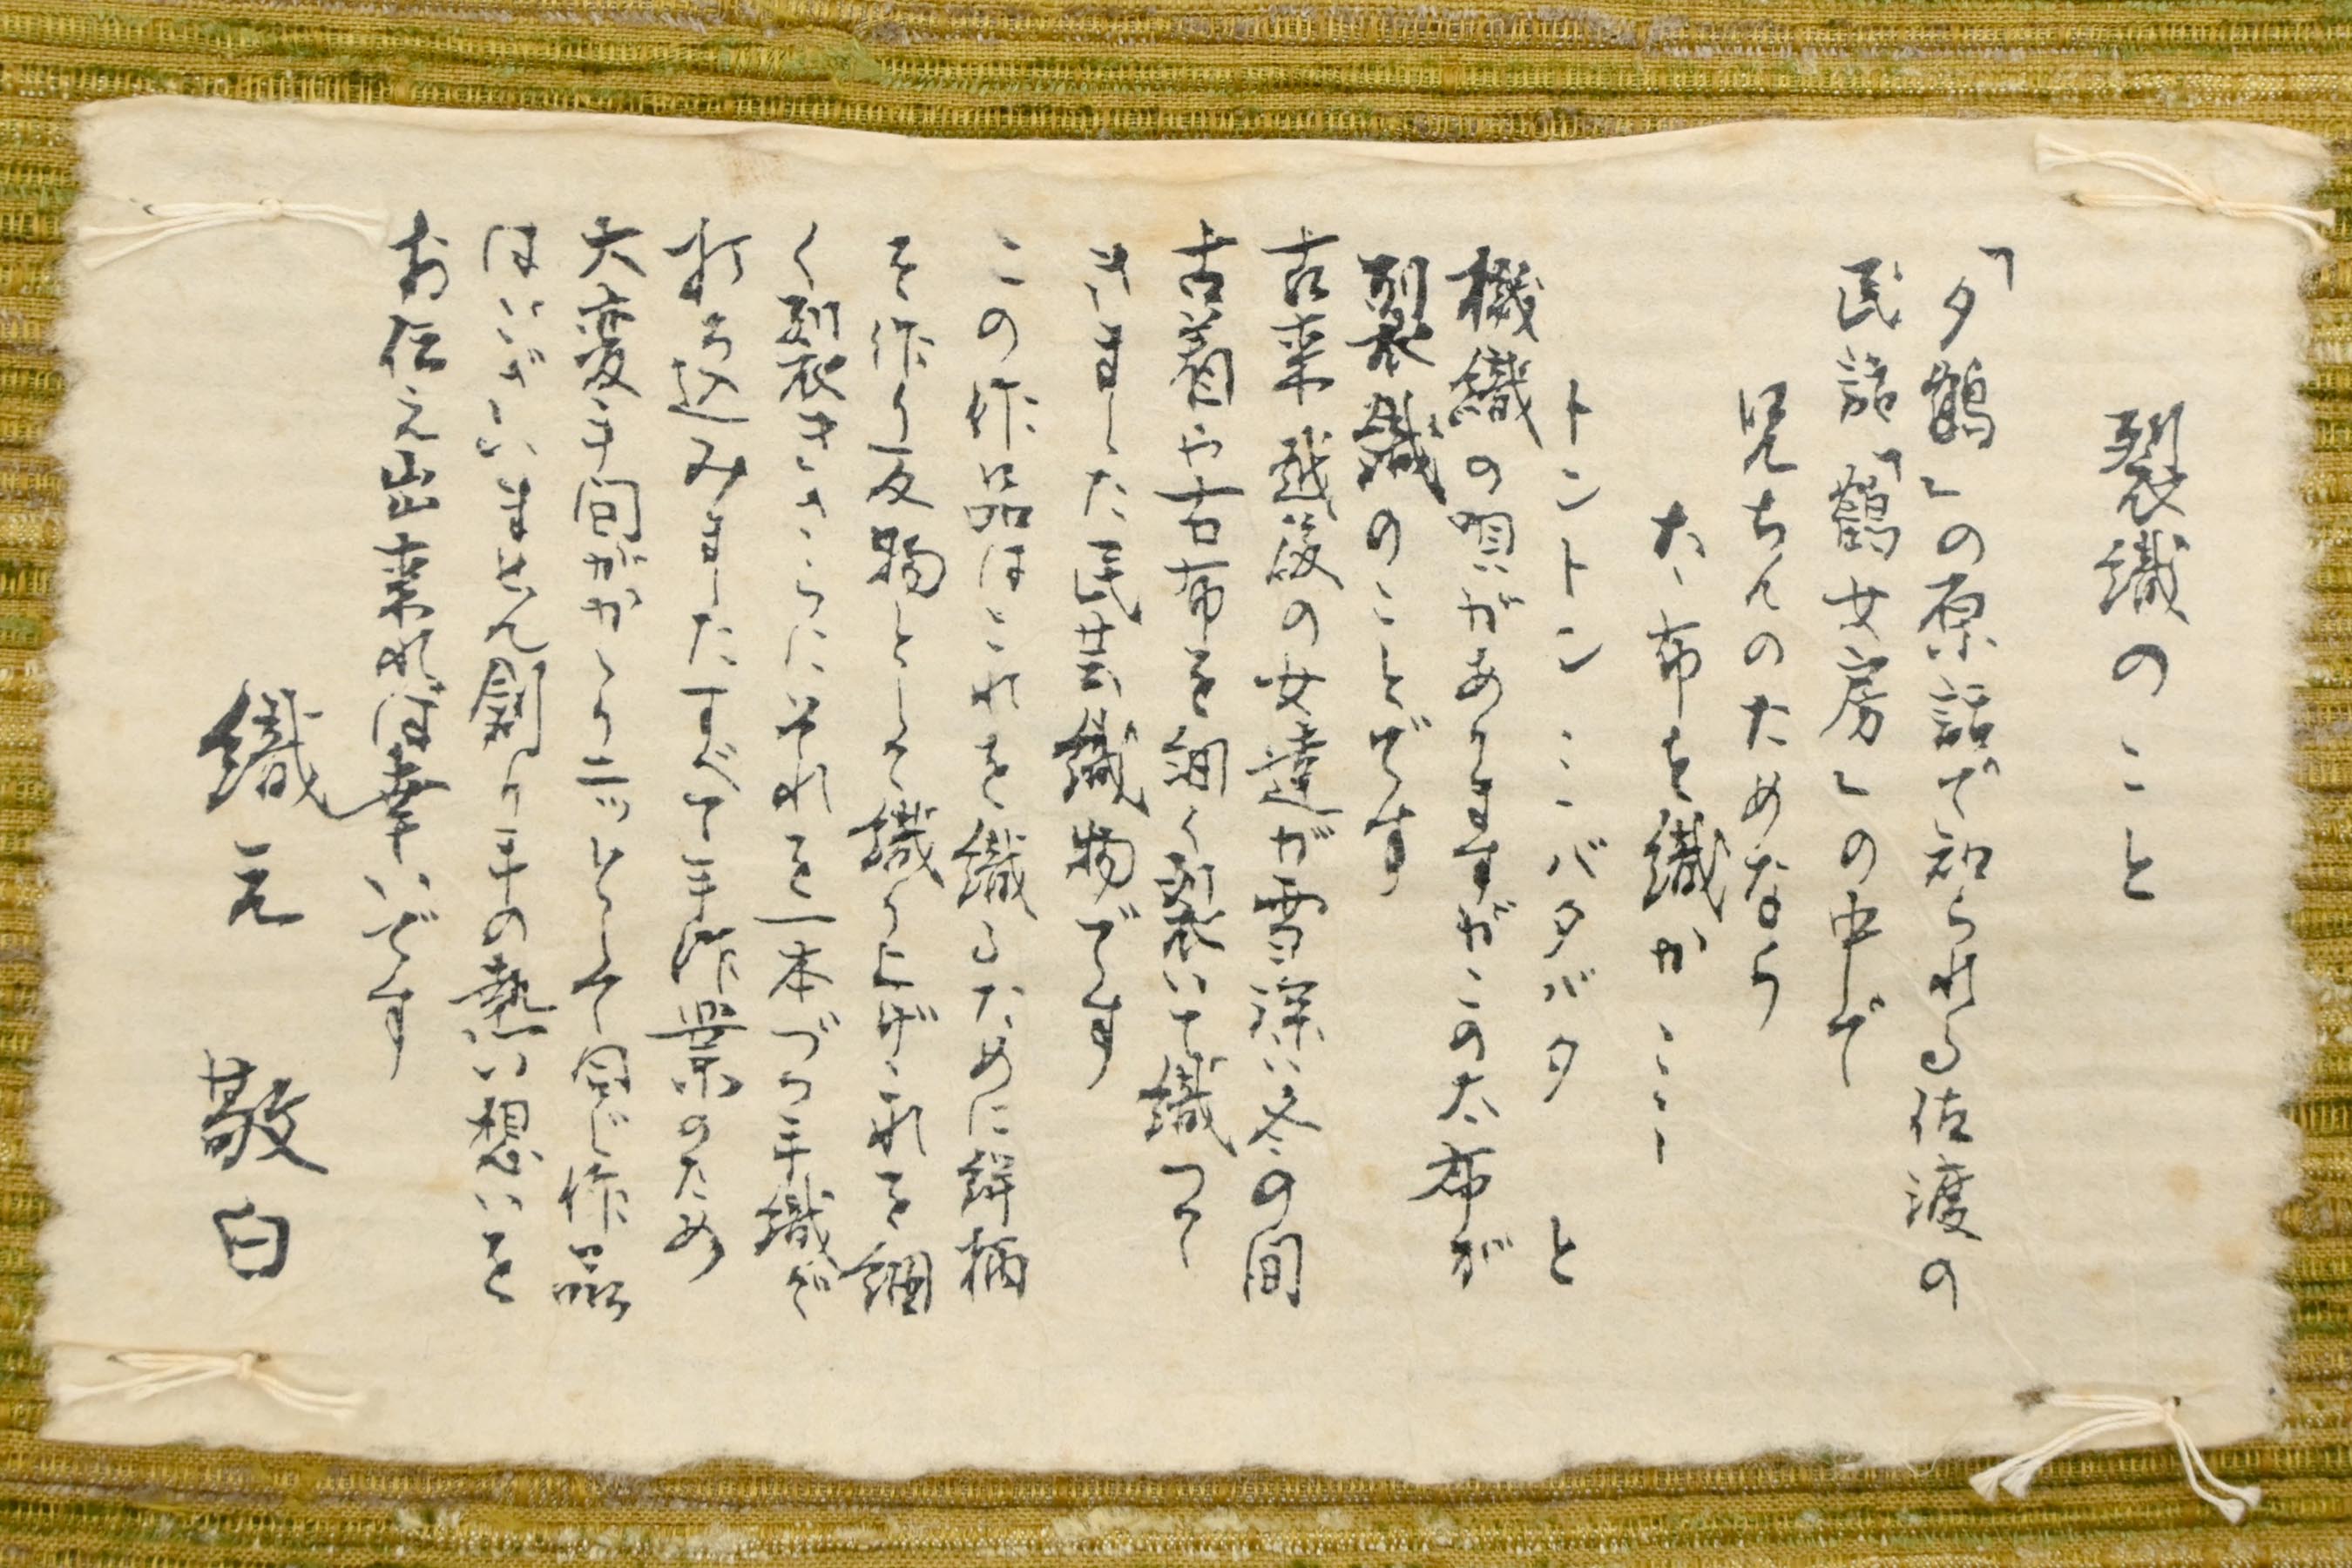 裂織のこと
「夕鶴」の原話で知られる佐渡の
民話「鶴女房」の中で
兄ちんのためなら
太布を織か……
トントン……バタバタ と
機織の唄がありますがこの太布が
裂織のことです
古来越後の女達が雪深い冬の間
古着や古布を細く裂いて織つて
きました民芸織物です
この作品はこれを織るために絣柄
を作り反物として織り上げこれを細
く裂きさらにそれを一本づつ手織で
打ち込みましたすべて手作業のため
大変手間がかゝり二ツとして同じ作品
はございません創り手の熱い想いを
お伝え出来れば幸いです
織元 敬白